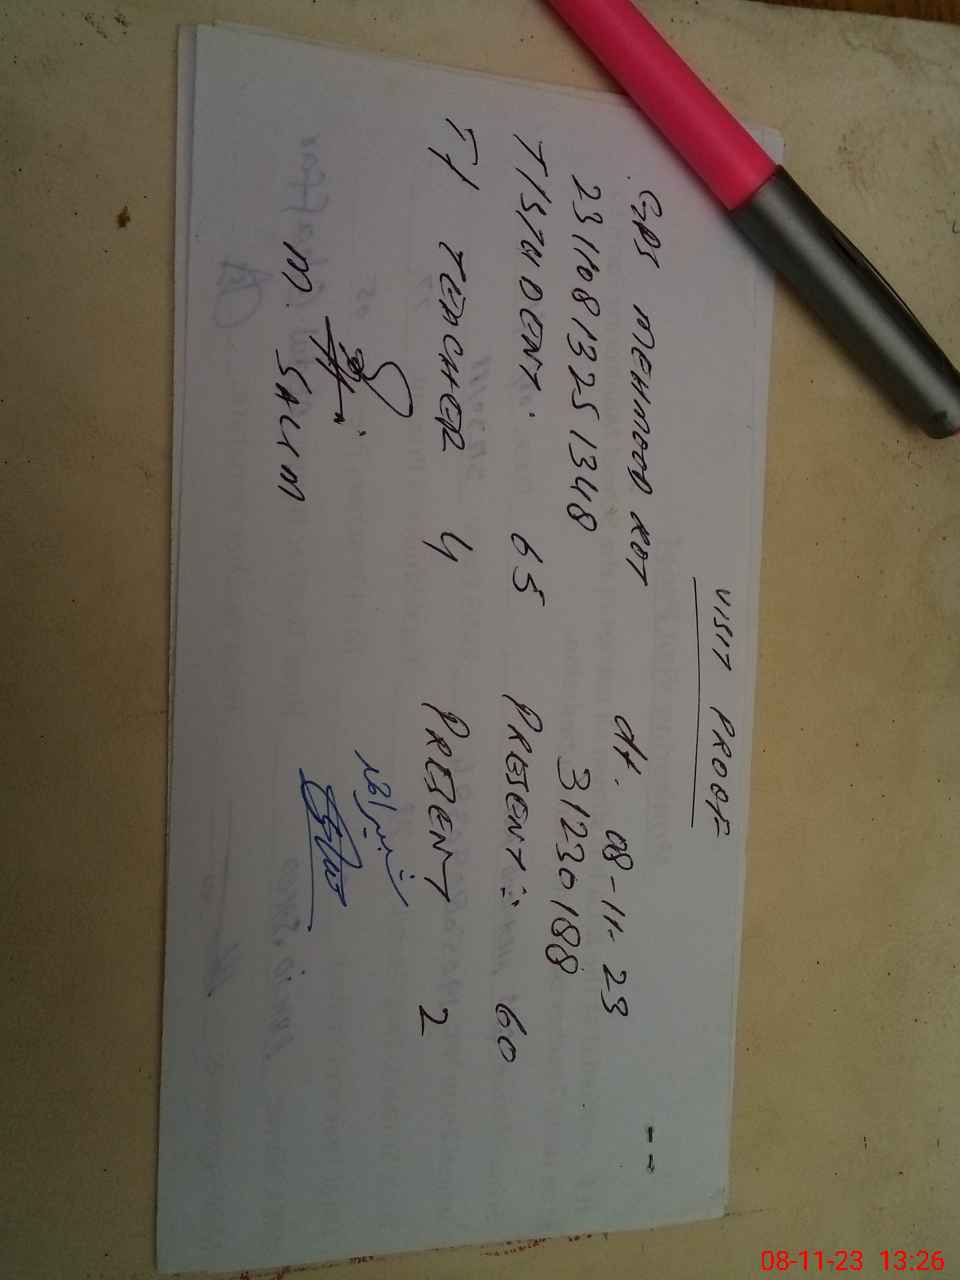 VISIT PROOF
GPS MEHMOOD KOT dt. 08-11-23
23110813251348 31230188
T/STUDENT. 65 PRESENT:- 60
T/ TEACHER 4 PRESENT 2
M. SALIM
08-11-23 13:26